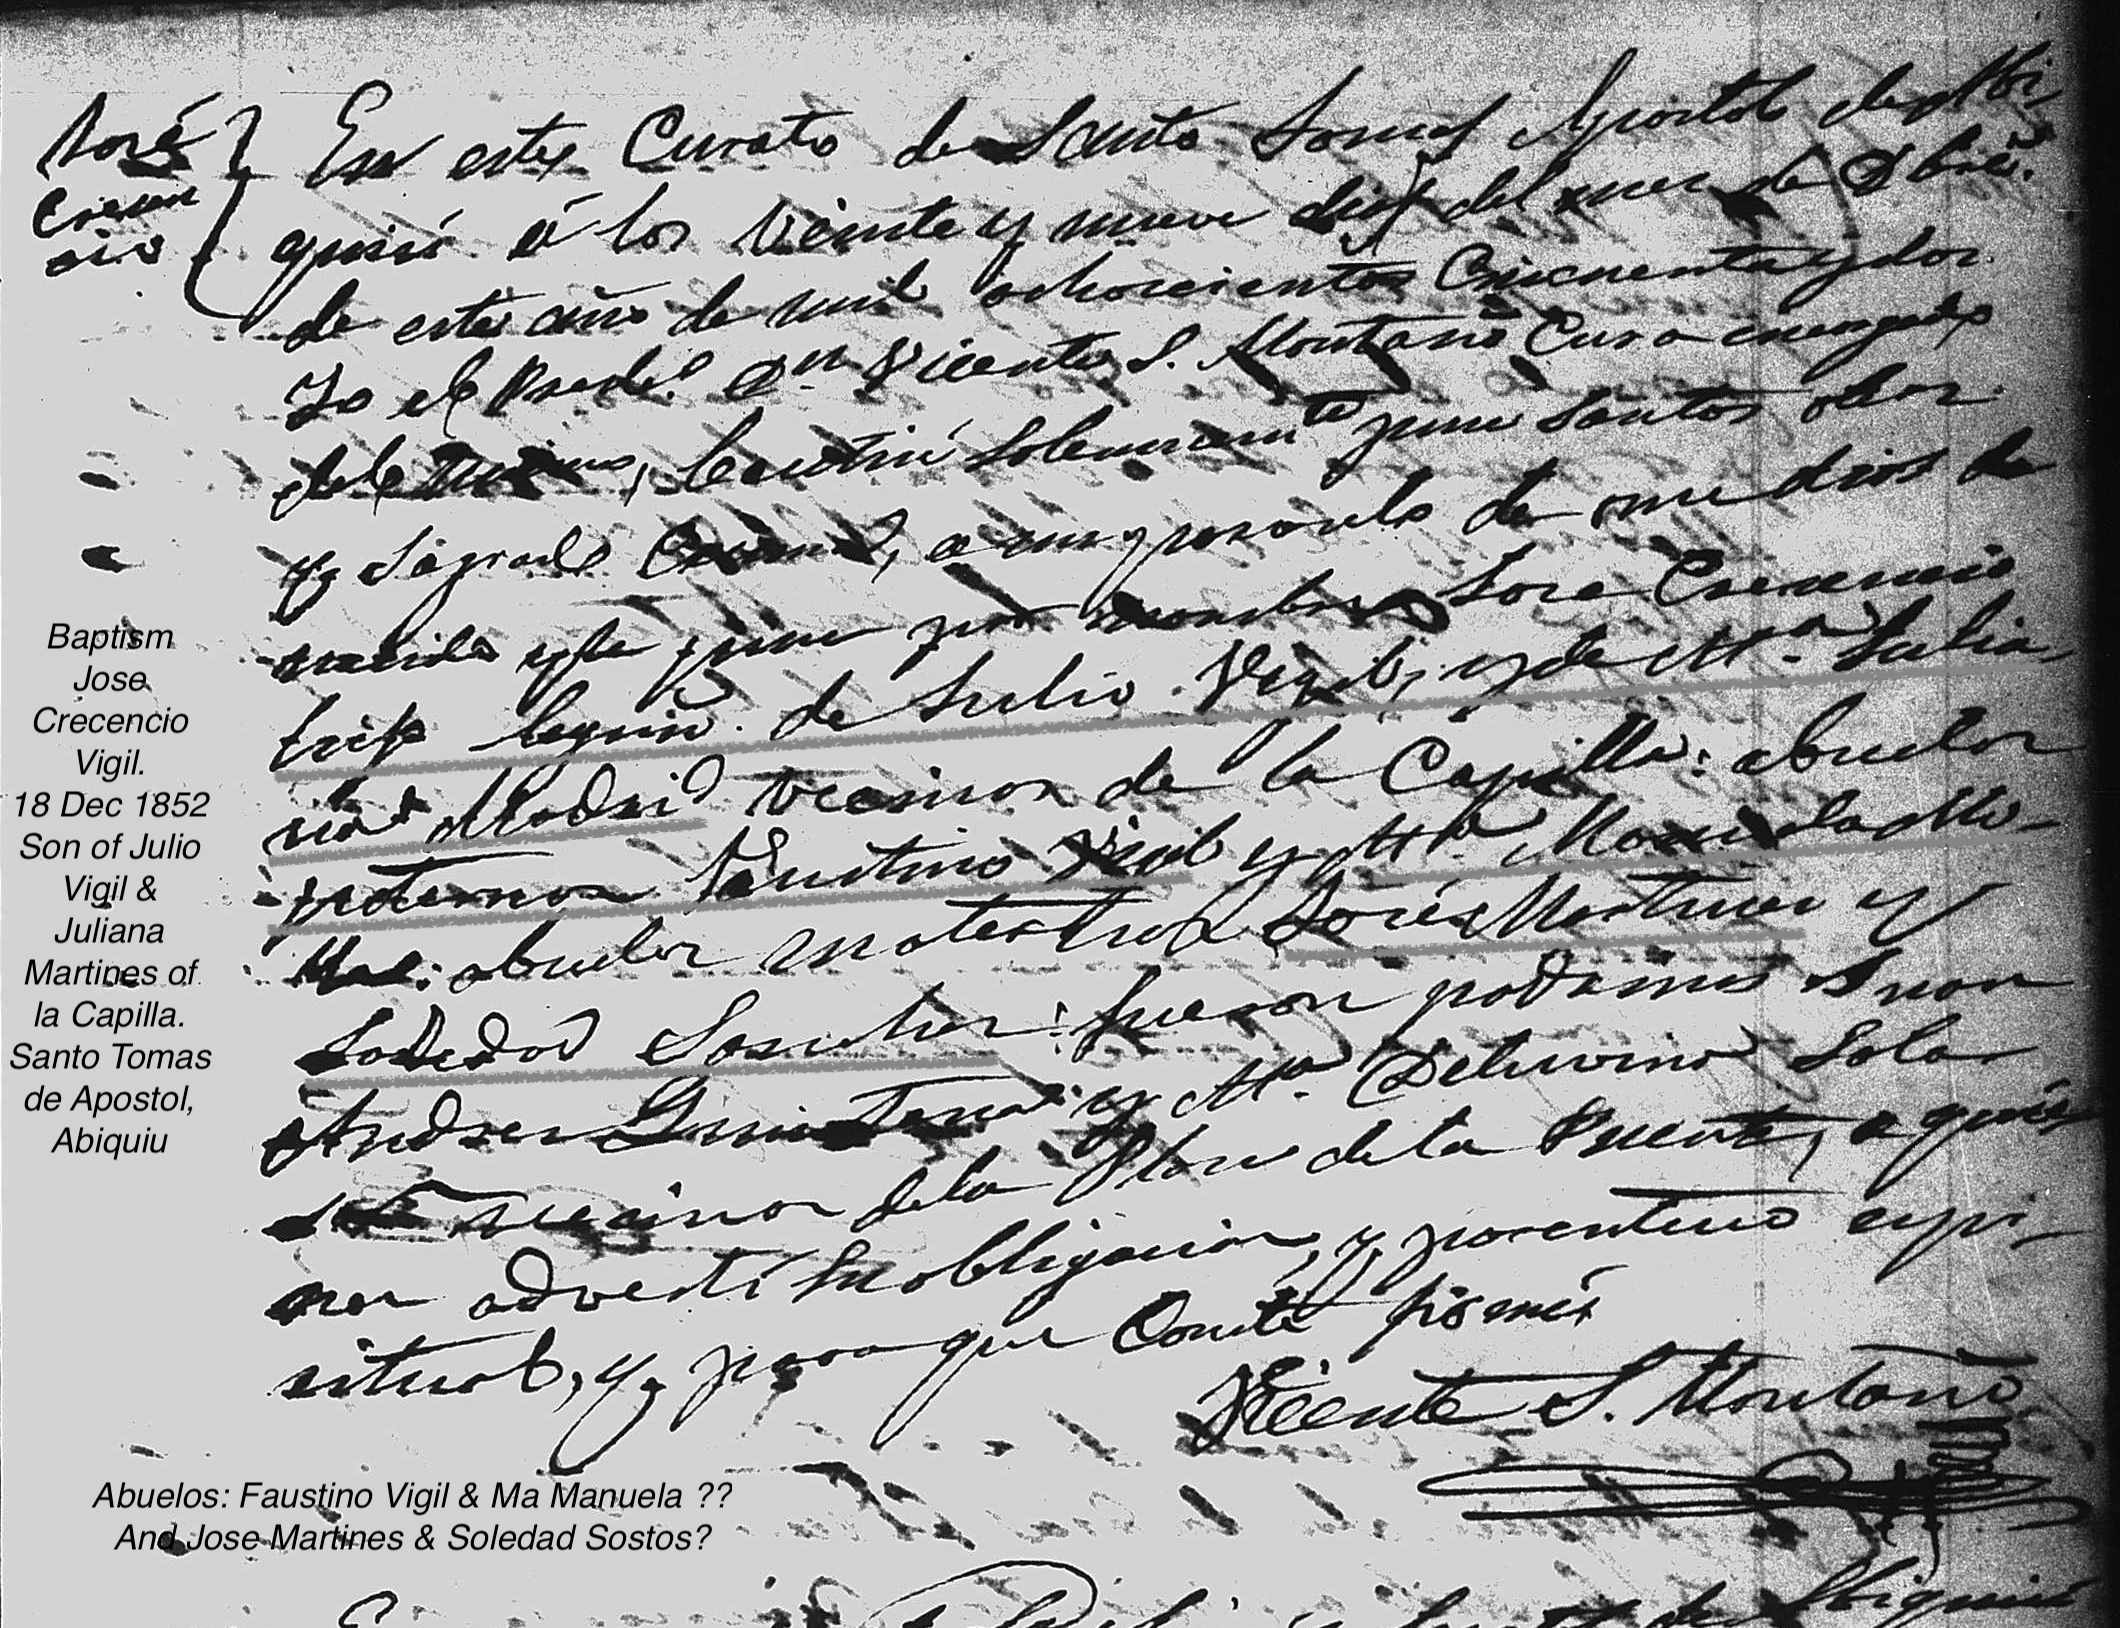 José
Crecen
cio
En este Curato de Santo Tomas Apostol de Abi-
quiú á los veinte y nueve dias del mes de Dbre.
de este año de mil ochocientos Cincuenta y dos
Yo el Presb.o Dn Vicente S. Montaño Cura encargado
del mismo, bautisé solemnemte puse Santos oleos
y Sagrado Crisma, a un parvulo de me dios de
nacido y le puse por nombre Jose Cresencio
hijo legmo. de Julio Vigil, y de Ma. Julia-
na Madrid vecinos de la Capilla: abuelos
paternos Faustino Vigil y Ma. Manuela
abuelos maternos José Martines y
Soledad Sanches: fueron padrinos Juan
Andres Quintana y Ma. Deluvina Sala-
vecinos de la Plasa de la Puente, a quie-
nes advertí su obligacion, y parentesco espi-
ritual, y para que Conste firmé
Vicente S. Montaño
Baptism
Jose
Crecencio
Vigil.
18 Dec 1852
Son of Julio
Vigil &
Juliana
Martines of
la Capilla.
Santo Tomas
de Apostol,
Abiquiu
Abuelos: Faustino Vigil & Ma Manuela ??
And Jose Martines & Soledad Sostos?